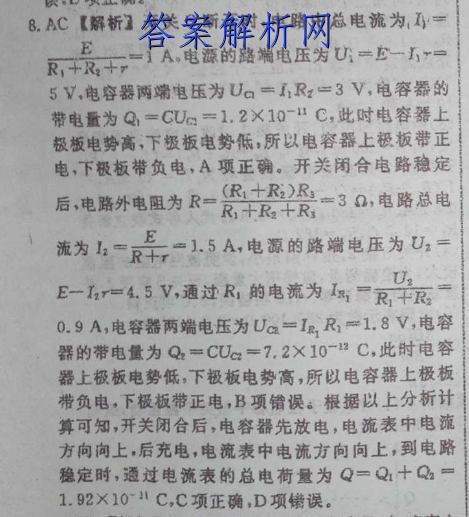 误,D项正确。
8. AC 【解析】开关
答案解析网
总电流为 I₁=
E/(R₁+R₂+r)=1 A。电源的路端电压为 U₁=E-I₁r=
5 V,电容器两端电压为 U_C1=I₁R₂=3 V,电容器的
带电量为 Q₁=CU_C1=1.2×10⁻¹¹ C,此时电容器上
极板电势高,下极板电势低,所以电容器上极板带正
电,下极板带负电,A 项正确。开关闭合电路稳定
后,电路外电阻为 R=(R₁+R₂)R₃/(R₁+R₂+R₃)=3 Ω,电路总电
流为 I₂=E/(R+r)=1.5 A,电源的路端电压为 U₂=
E-I₂r=4.5 V,通过 R₁ 的电流为 I_R₁=U₂/(R₁+R₂)=
0.9 A,电容器两端电压为 U_C2=I_R₁R₁=1.8 V,电容
器的带电量为 Q₂=CU_C2=7.2×10⁻¹² C,此时电容
器上极板电势低,下极板电势高,所以电容器上极板
带负电,下极板带正电,B 项错误。根据以上分析计
算可知,开关闭合后,电容器先放电,电流表中电流
方向向上,后充电,电流表中电流方向向上,到电路
稳定时,通过电流表的总电荷量为 Q=Q₁+Q₂=
1.92×10⁻¹¹ C,C 项正确,D 项错误。